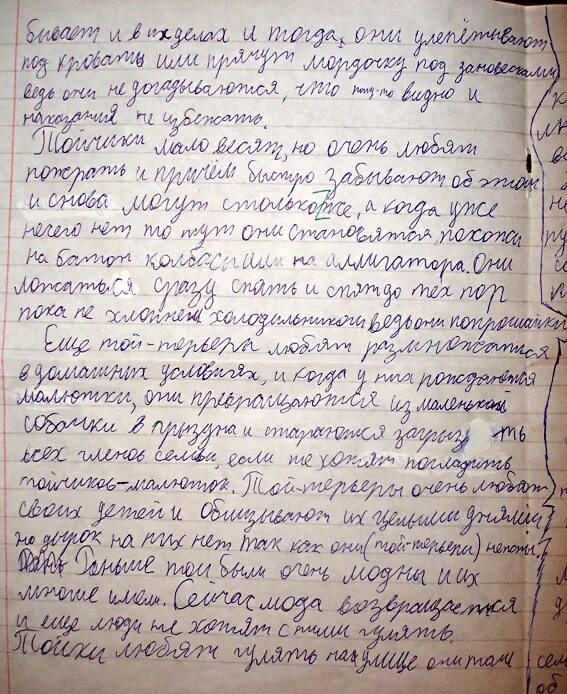 бывает и в их делах и тогда, они улепётывают
под кровать или прячут мордочку под зановесками
ведь они не догадываются, что попу-то видно и
наказания не избежать.
Тойчики мало весят, но очень любят
пожрать и причём быстро забывают об этом
и снова могут столько же, а когда уже
нечего нет то тут они становятся похожи
на батон колбасы или на аллигатора. Они
ложаться сразу спать и спят до тех пор
пока не хлопнеш холодильником ведь они попрошайки
Еще той-терьеры любят размножаться
в домашних условиях, и когда у них рождаются
малютки, они превращаются из маленькой
собачки в грызуна и стараются загрызть
всех членов семьи, если те хотят погладить
тойчиков-малюток. Той-терьеры очень любят
своих детей и облизывают их целыми днями
но дырок на них нет так как они (той-терьеры)
Раньше тои были очень модны и их
многие имели. Сейчас мода возвращается
и еще люди не хотят с ними гулять.
Тойки любят гулять на улице они там